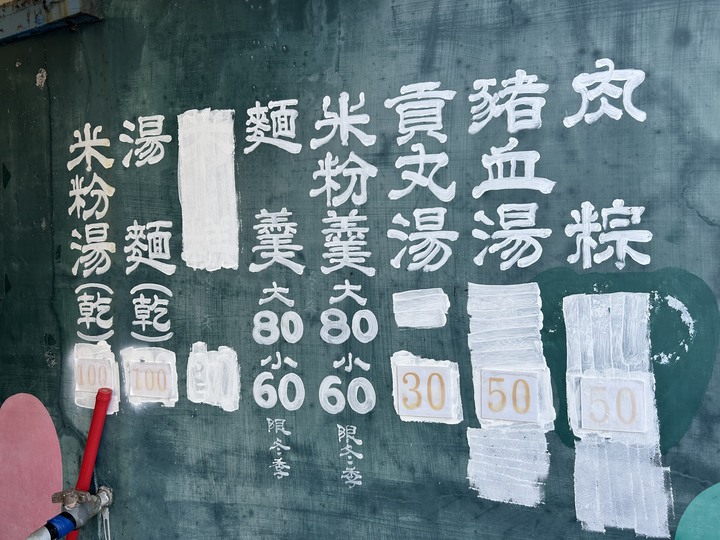 肉粽
50
豬血湯
50
貢丸湯
30
米粉羹大80小60
限冬季
麵羹大80小60
限冬季
湯麵(乾)
100
米粉湯(乾)
100